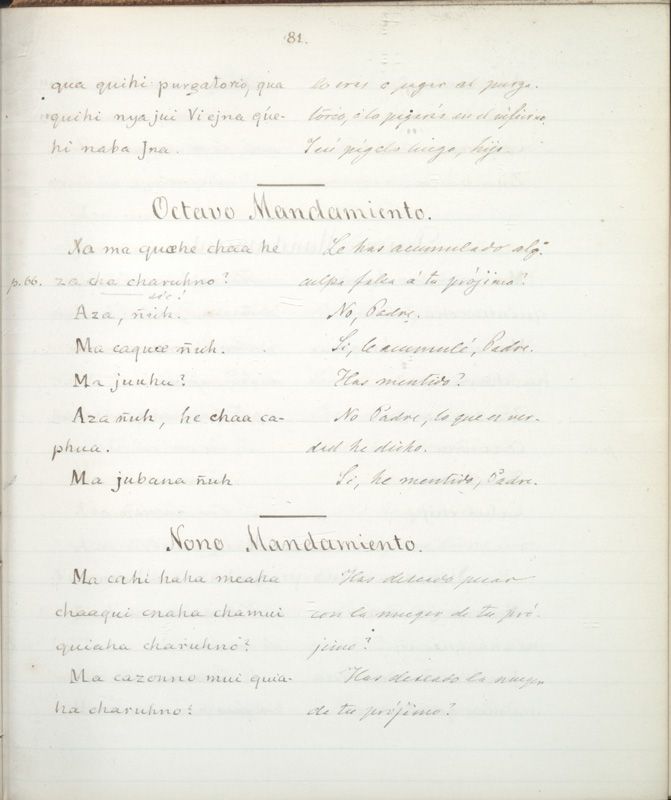 81.
qua quihi purgatorio, qua
quihi nya jui Viejna que-
hi naba Jna.
Octavo Mandamiento.
Xa ma quœhe chaa he
p. 66. za cha charuhno?
sic!
Aza, ñuh.
Ma caquœ ñuh.
Ma juuhu?
Aza ñuh, he chaa ca-
phua.
Ma jubana ñuh
ó lo pagarás en el infierno
Le has acumulado algª
culpa falsa á tu prójimo?
No, Padre.
Si, le acumulé, Padre.
Has mentido?
No Padre, lo que es ver-
dad he dicho.
Si, he mentido, Padre.
Nono Mandamiento.
Ma cahi haha meaha
chaaqui cnaha chamui
quiaha charuhno?
Ma cazonno mui quia-
ha charuhno?
Has deseado pecar
con la muger de tu pró-
jimo?
Has deseado la muger
de tu prójimo?